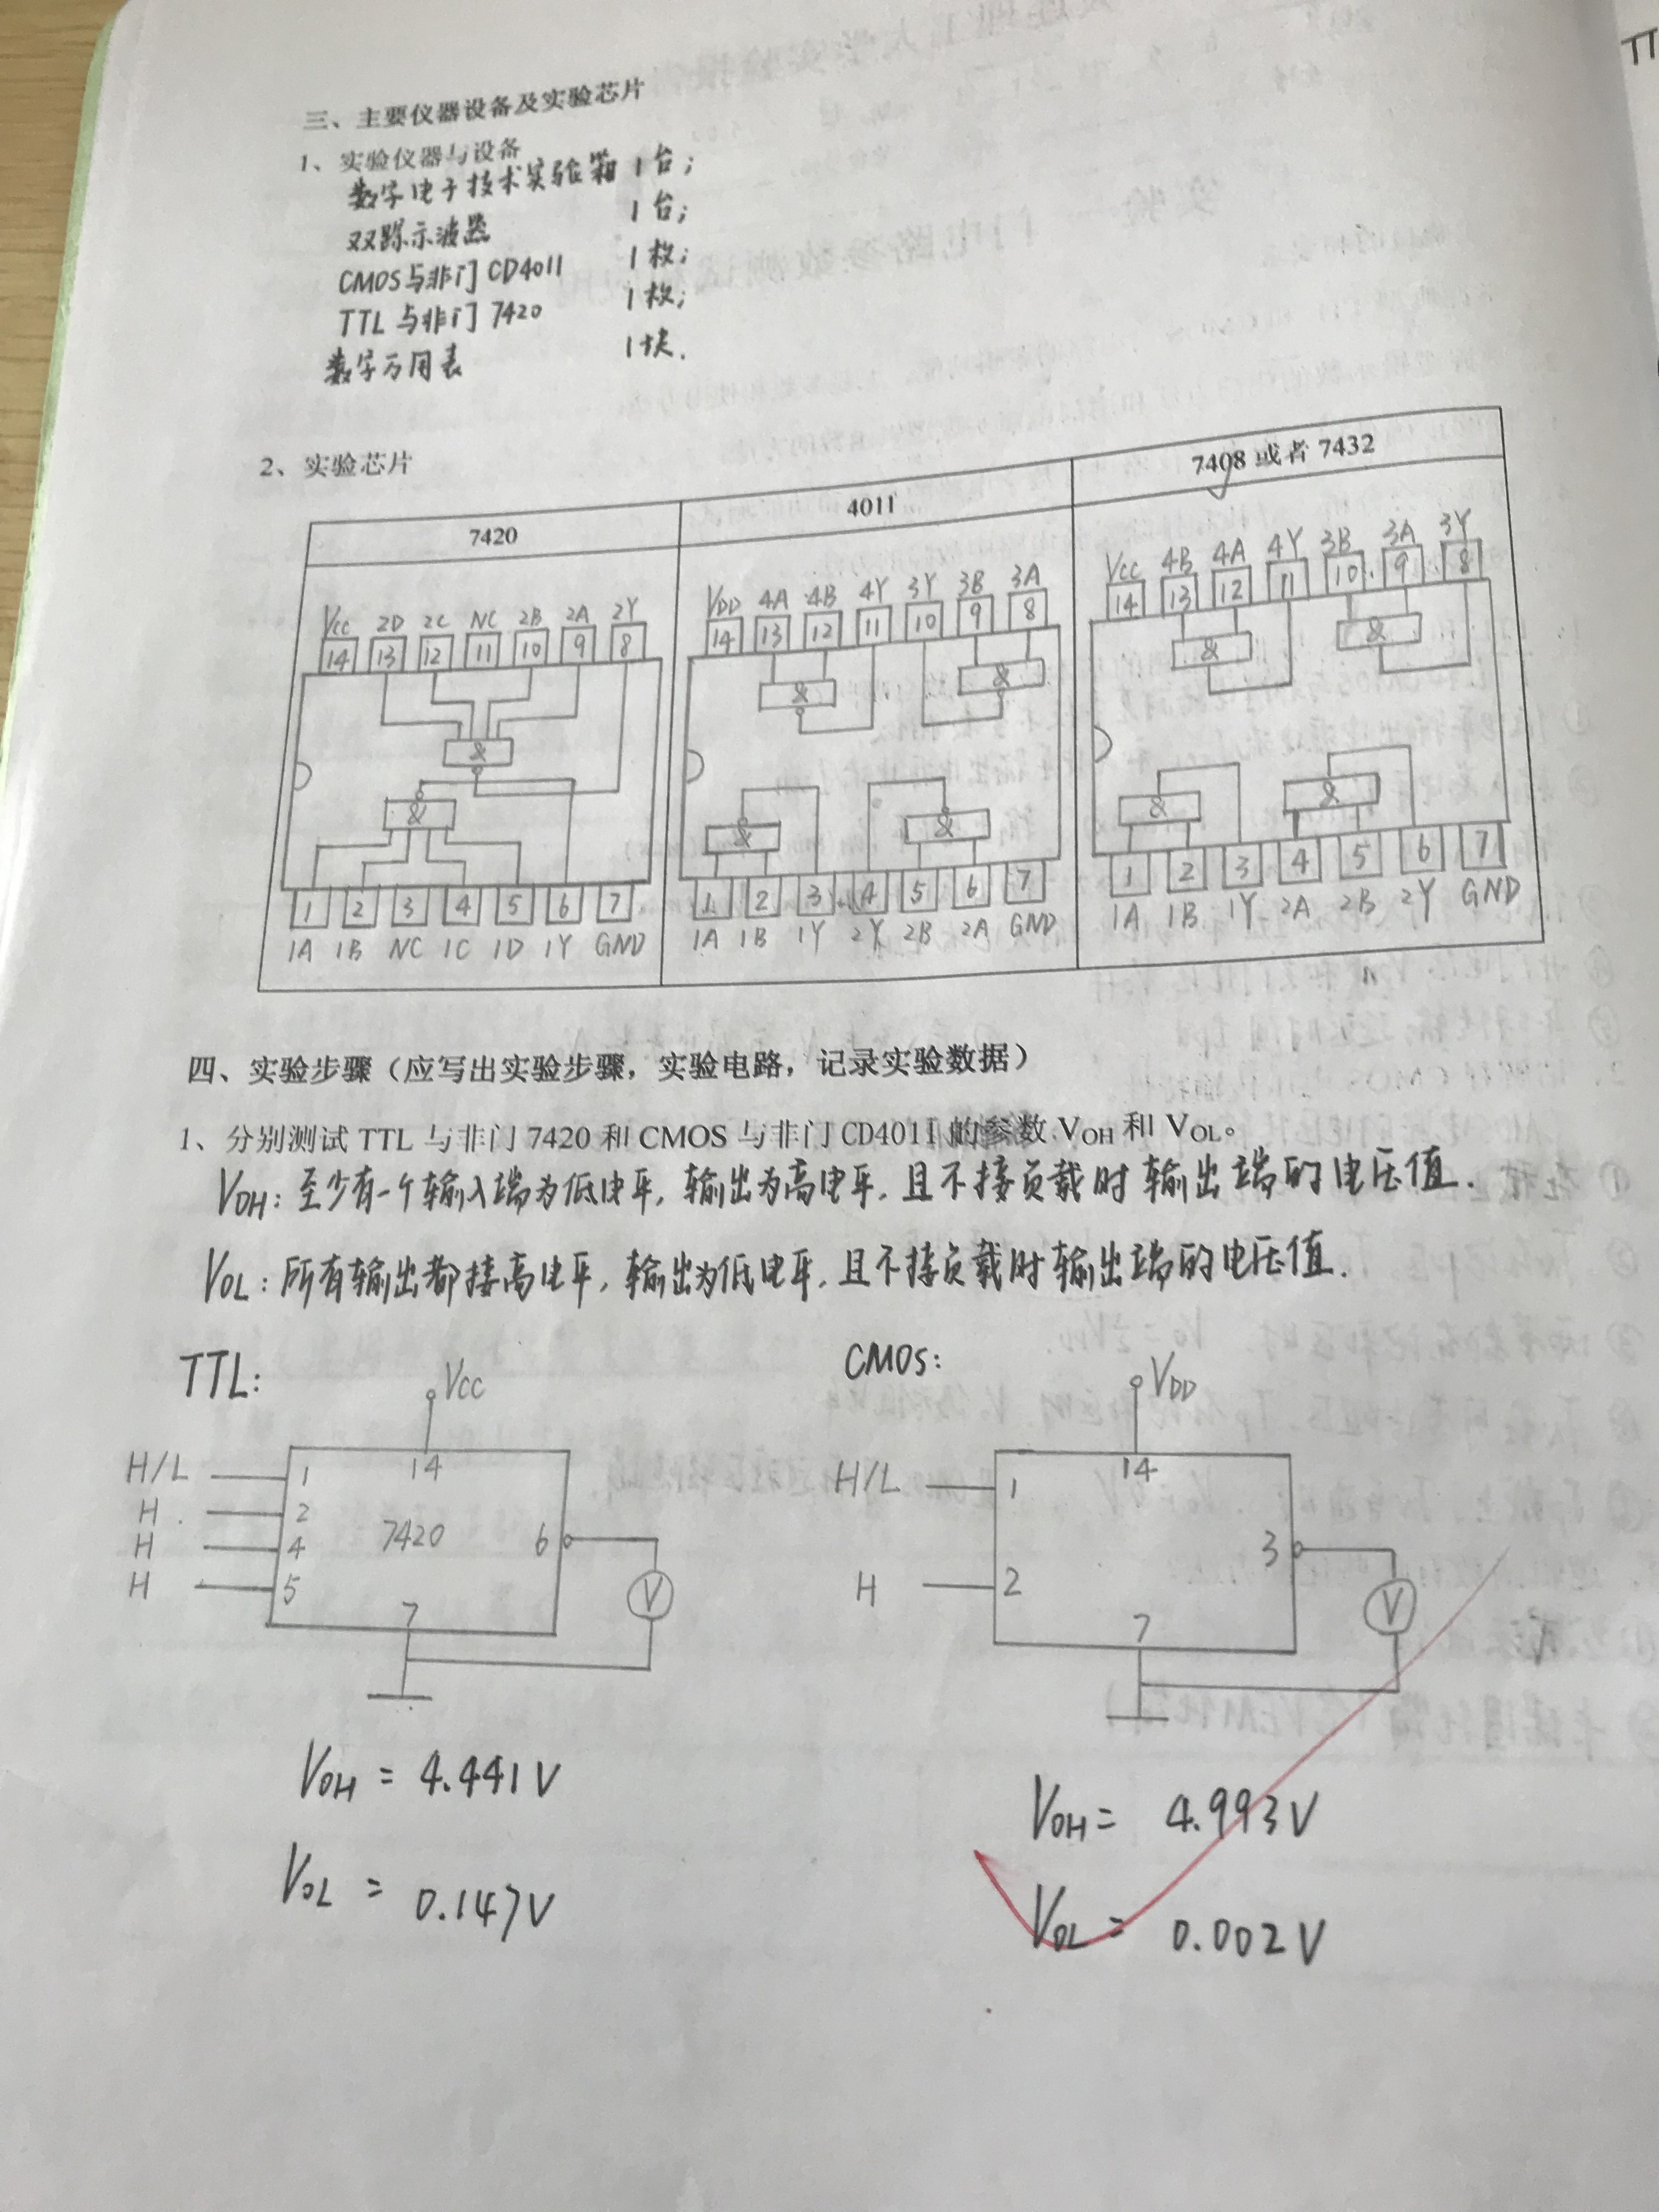 三、主要仪器设备及实验芯片
1、实验仪器与设备
数字电子技术实验箱 1台；
双踪示波器 1台；
CMOS与非门CD4011 1枚；
TTL与非门7420 1枚；
数字万用表 1块.
2、实验芯片
7420 4011 7408或者7432
Vcc 2D 2C NC 2B 2A 2Y
14 13 12 11 10 9 8
&
&
1 2 3 4 5 6 7
1A 1B NC 1C 1D 1Y GND
VDD 4A 4B 4Y 3Y 3B 3A
14 13 12 11 10 9 8
& &
& &
1 2 3 4 5 6 7
1A 1B 1Y 2Y 2B 2A GND
Vcc 4B 4A 4Y 3B 3A 3Y
14 13 12 11 10 9 8
& &
& &
1 2 3 4 5 6 7
1A 1B 1Y 2A 2B 2Y GND
四、实验步骤（应写出实验步骤，实验电路，记录实验数据）
1、分别测试 TTL 与非门 7420 和 CMOS 与非门 CD4011 的参数 VOH 和 VOL。
VOH：至少有一个输入端为低电平，输出为高电平，且不接负载时输出端的电压值.
VOL：所有输出都接高电平，输出为低电平，且不接负载时输出端的电压值.
TTL:
Vcc
H/L 1 14
H 2
H 4 7420 6
H 5 V
7
VOH = 4.441V
VOL = 0.147V
CMOS:
VDD
H/L 1 14
3
H 2 V
7
VOH = 4.993V
VOL = 0.002V